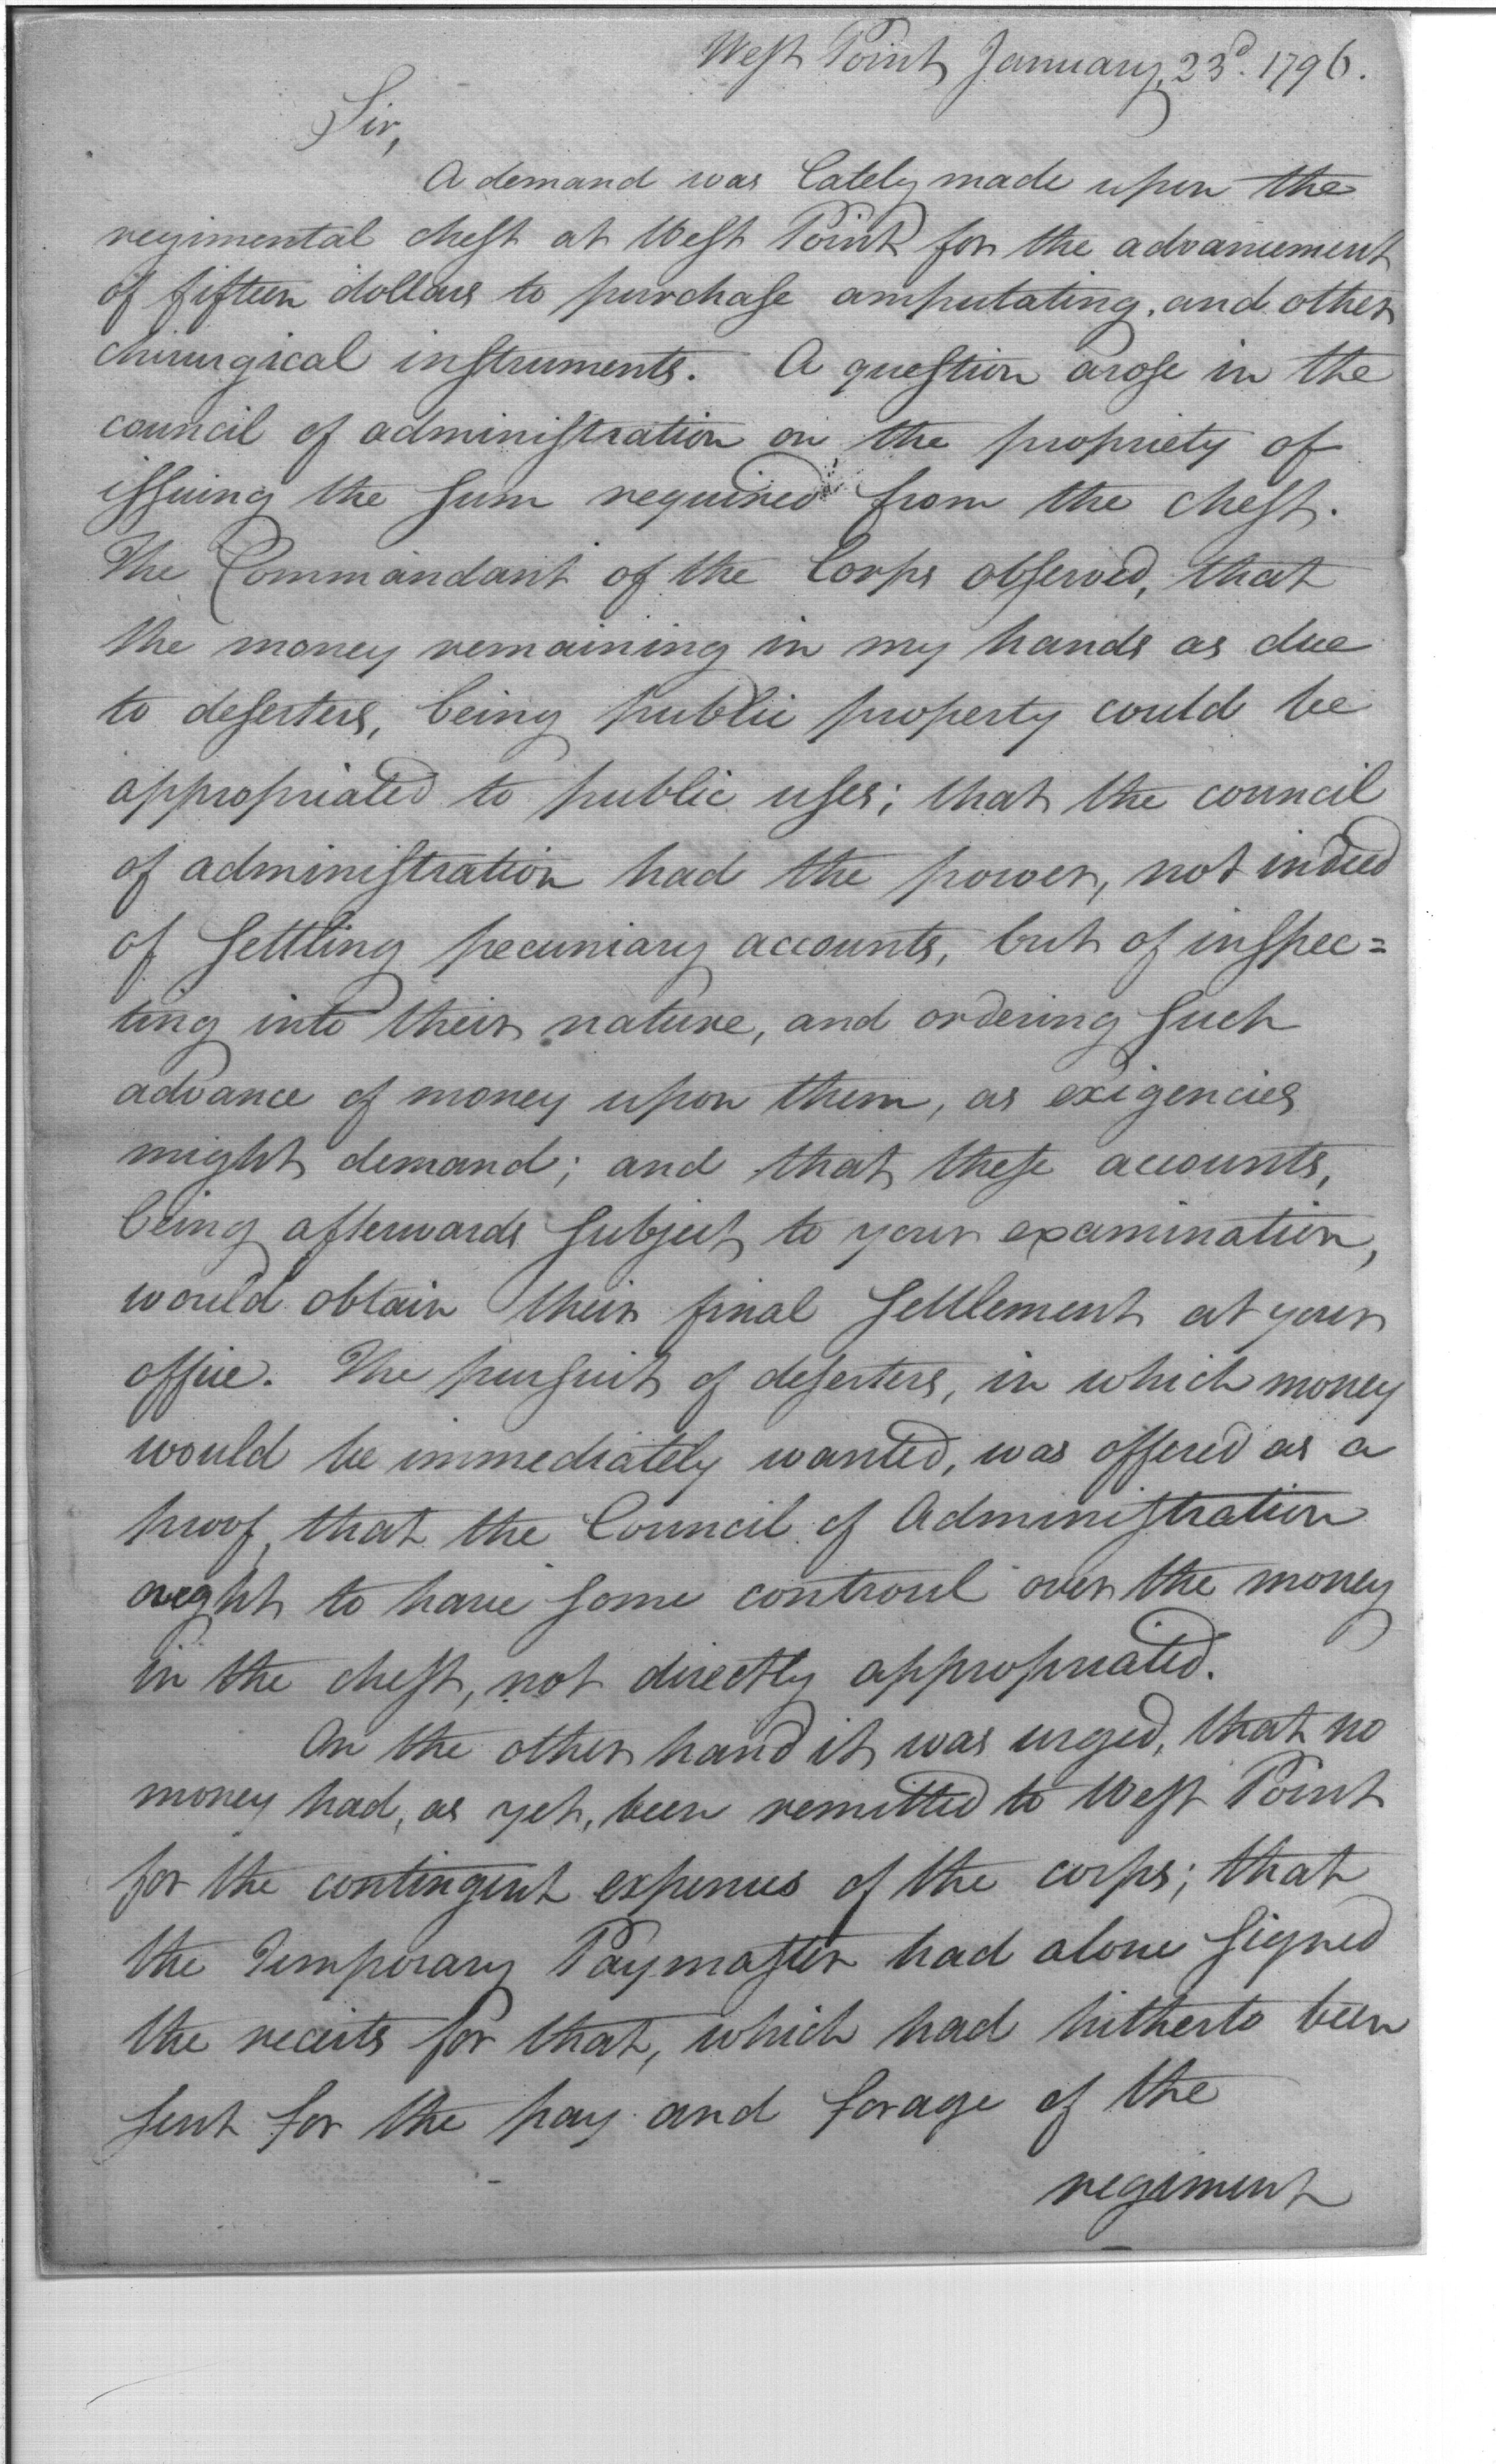 West Point January 23d. 1796.
Sir,
A demand was lately made upon the
regimental chest at West Point for the advancement
of fifteen dollars to purchase amputating, and other
chirurgical instruments. A question arose in the
council of administration on the propriety of
issuing the sum required from the chest.
The Commandant of the Corps observed, that
the money remaining in my hands as due
to deserters, being public property could be
appropriated to public uses; that the council
of administration had the power, not indeed
of settling pecuniary accounts, but of inspec=
ting into their nature, and ordering such
advance of money upon them, as exigencies
might demand; and that these accounts,
being afterwards subject to your examination,
would obtain their final settlement at your
office. The pursuit of deserters, in which money
would be immediately wanted, was offered as a
proof, that the Council of Administration
ought to have some controul over the money
in the chest, not directly appropriated.
On the other hand it was urged, that no
money had, as yet, been remitted to West Point
for the contingent expenses of the corps; that
the Temporary Paymaster had alone signed
the receits for that, which had hitherto been
sent for the pay and forage of the
regiment